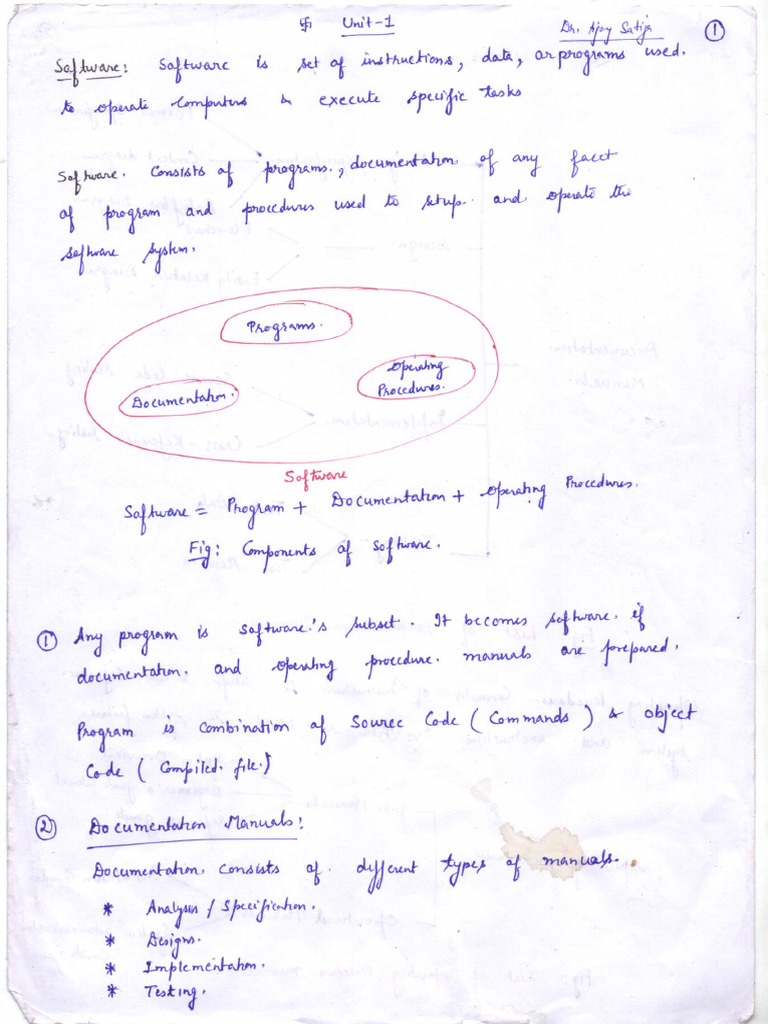 卐 Unit-1
Dr. Ajay Satija
1
Software: Software is set of instructions, data, or programs used.
to operate Computers & execute specific tasks
Software. Consists of programs, documentation of any facet
of program and procedures used to setup and operate the
software system.
Programs.
Documentation.
Operating
Procedures.
Software
Software = Program + Documentation + Operating Procedures.
Fig: Components of Software.
① Any program is software's subset. It becomes software if
documentation. and operating procedure manuals are prepared.
Program is combination of Source Code (Commands) & Object
Code (Compiled file.)
② Documentation Manuals:
Documentation. consists of different types of manuals.
* Analysis / Specification.
* Designs.
* Implementation.
* Testing.